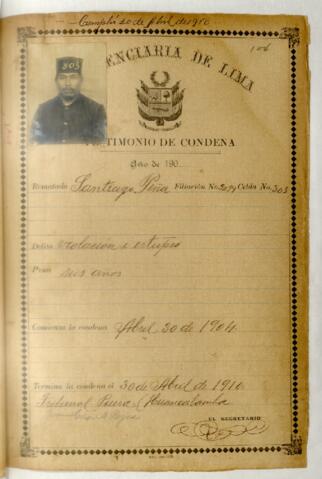 Cumplió 20 de Abril de 1910
106
303
PENITENCIARIA DE LIMA
TESTIMONIO DE CONDENA
Año de 190
Rematado Santiago Peña Filiación No. 2099 Celda No. 303
Delito violación e estupro
Pena seis años
Comienza la condena Abril 20 de 1904
Termina la condena el 20 de Abril de 1910
Tribunal Piura y Huancabamba
EL SECRETARIO